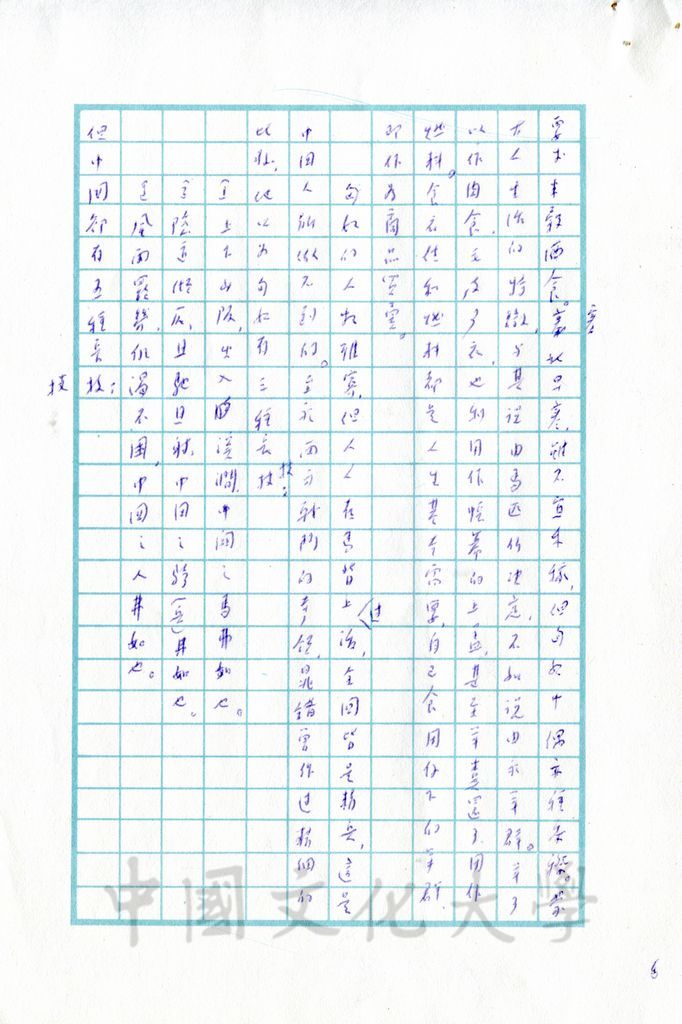 要求米穀酒食。塞北早寒,雖不宜禾稼,但匈奴中偶亦種黍穄。蒙
古人生活的特徵,與其說由馬匹所決定,不如說由於羊群。羊可
以作肉食,毛皮可衣,也利用作帷幕的上蓋,甚至羊糞還可用作
燃料。食衣住和燃料都是人生基本需要,自己食用下的羊群,
即作為商品買賣。
匈奴的人數雖寡,但人人在馬背上過活,全國皆是精兵,這是
中國人所做不到的。至於兩方戰鬥的本領,晁錯曾作過精細的
比較,他以為匈奴有三種長技:
上下山阪,出入溪澗,中國之馬弗如也。
險道傾仄,且馳且射,中國之騎(兵)弗如也。
風雨罷勞,飢渴不困,中國之人弗如也。
但中國卻有五種長技:
技
6
中國文化大學